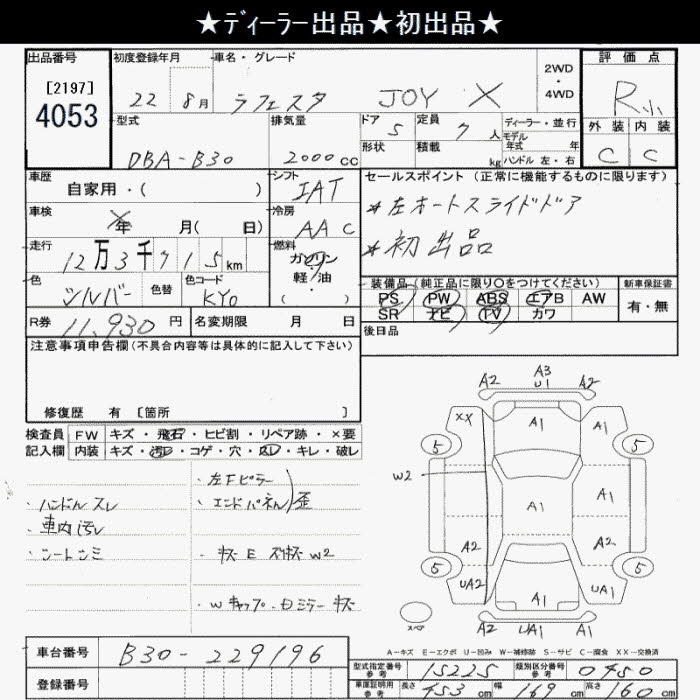 ★ディーラー出品★初出品★
出品番号 初度登録年月 車名・グレード 2WD・4WD 評価点
[2197]
4053
22 8月 ラフェスタ JOY X R小
型式 排気量 ドア 定員 ディーラー・並行 外装 内装
DBA-B30 2000cc 5 7人 モデル年式 年 C C
形状 積載 kg ハンドル 左・右
車歴 シフト セールスポイント (正常に機能するものに限ります)
自家用・( ) IAT
*左オートスライドドア
車検 年 月( 日) 冷房 AAC
*初出品
走行 12万3千715km 燃料 ガソリン・軽油・( )
色 シルバー 色替 色コード KY0
装備品 (純正品に限り○をつけてください) 新車保証書
PS PW ABS エアB AW 有・無
SR ナビ TV カワ
R券 11,930円 名変期限 月 日 後日品
注意事項申告欄 (不具合内容等は具体的に記入して下さい)
修復歴 有 [箇所 ]
検査員 FW キズ・飛石・ヒビ割・リペア跡・×要
記入欄 内装 キズ・汚れ・コゲ・穴・凹・キレ・破レ
・左Fピラー
・ハンドルスレ ・エンドパネル)歪
・車内汚レ
・シートシミ
・Wキャップ・Dミラーキズ
A2
A3
U1
A2
XX
A1
A1
5
5
W2
A1
A1
A2
A2
5
5
UA2
A1
UA1
スペア
A2
UA1
A1
A-キズ E-エクボ U-凹み W-補修跡 S-サビ C-腐食 XX-交換済
車台番号 B30-229196
登録番号
型式指定番号 参考 15225 類別区分番号 参考 0450
車庫証明用 参考 長さ 453cm 幅 169cm 高さ 160cm